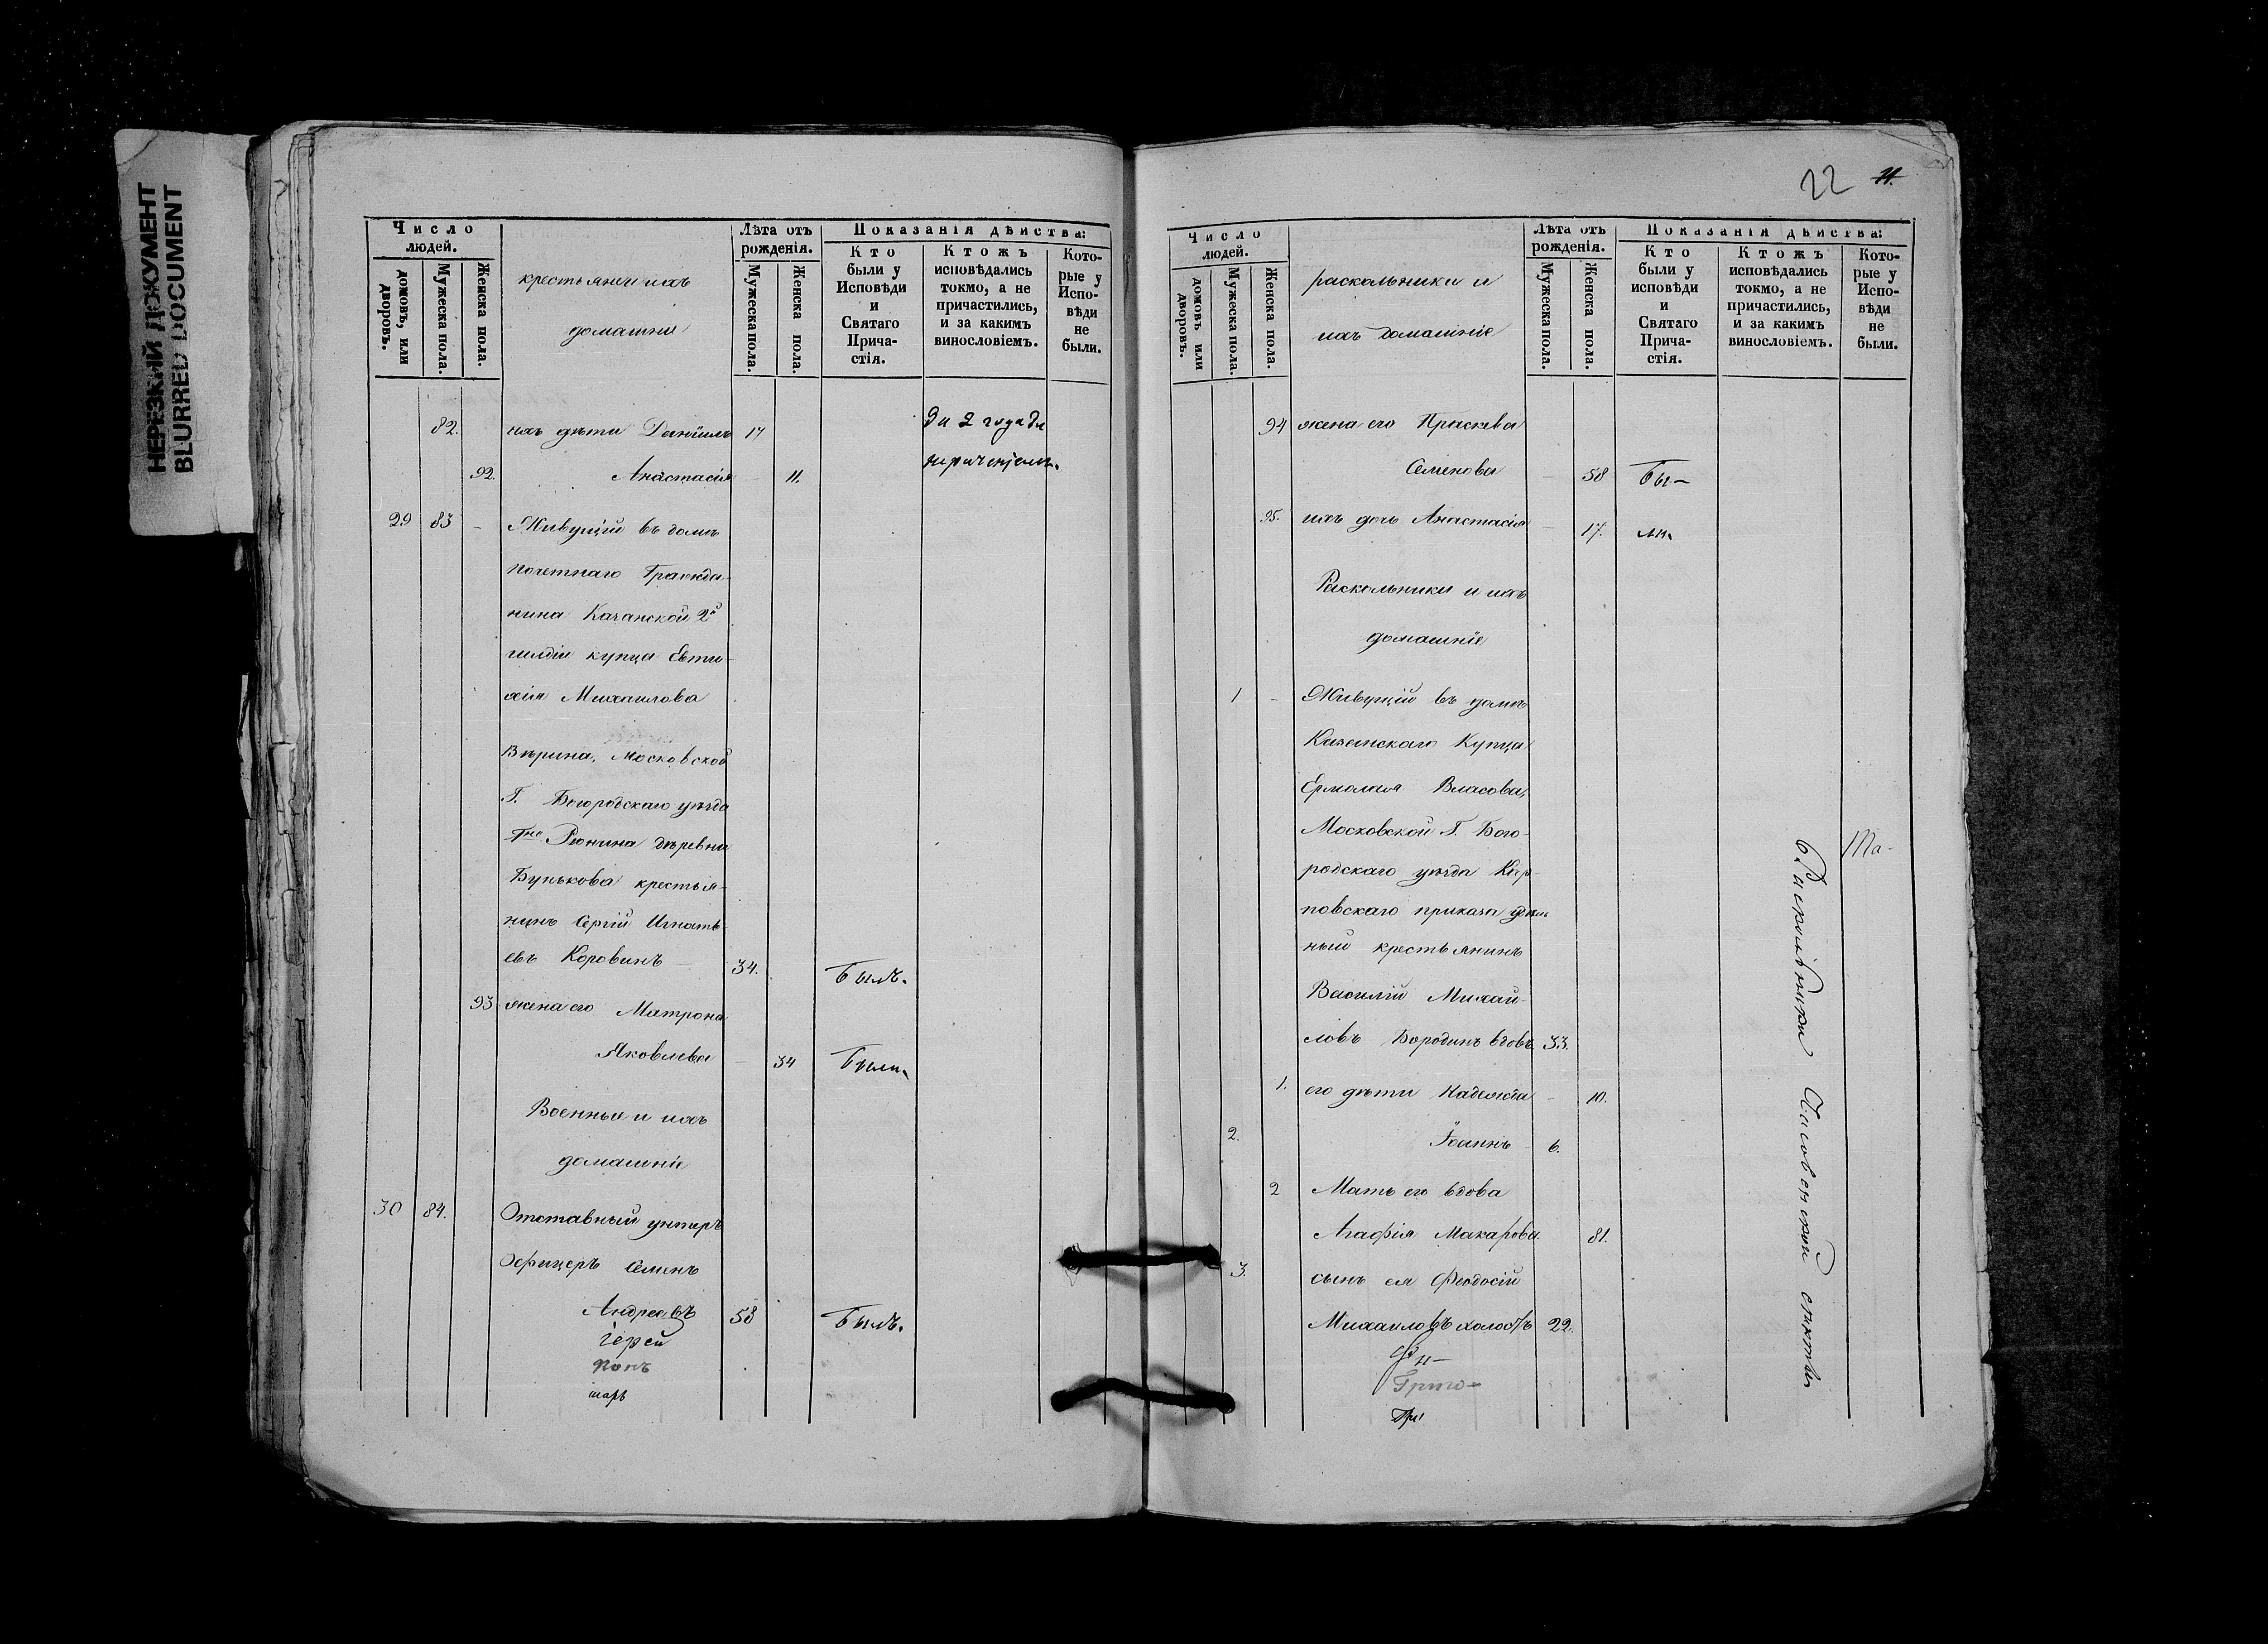 НЕРЕЗКИЙ ДОКУМЕНТ
BLURRED DOCUMENT
Число людей.
домовъ, или дворовъ.
Мужеска пола.
Женска пола.
крестьяне и ихъ
домашніе
Лѣта отъ рожденія.
Мужеска пола.
Женска пола.
Показанія дѣйства:
Кто были у Исповѣди и Святаго Причастія.
Ктожъ исповѣдались токмо, а не причастились, и за какимъ винословіемъ.
Которые у Исповѣди не были.
82. ихъ дѣти Даніилъ 14 За 2 года до
92. Анастасія - 11.
29 83 - Живущій въ домѣ
почетнаго Гражда-
нина 2й
гилдіи купца Евти-
хія Михаилова
Московской
Г. Богородскаго уѣзда
деревни
Бунькова крестья-
нинъ Сергій Игнать-
евъ Коровинъ - 34. Былъ.
93 жена его Матрона
Яковлева - 34 Были.
Военные и ихъ
домашніе
30 84. Отставный унтеръ
Офицеръ Семенъ
Андреевъ 58 Былъ.
Іерей
22 11.
Число людей.
домовъ или дворовъ.
Мужеска пола.
Женска пола.
раскольники и
ихъ домашніе
Лѣта отъ рожденія.
Мужеска пола.
Женска пола.
Показанія дѣйства:
Кто были у исповѣди и Святаго Причастія.
Ктожъ исповѣдались токмо, а не причастились, и за какимъ винословіемъ.
Которые у Исповѣди не были.
94 жена его Праскева
Семенова - 58 Бы-
95. ихъ дочь Анастасія - 17. ли.
Раскольники и ихъ
домашніе
1 - Живущій въ домѣ
Купца
Ермолая Власова,
Московской Г. Бого-
родскаго уѣзда Кар-
повскаго приказа удѣль
ный крестьянинъ
Василій Михай-
ловъ Бородинъ вдовъ 33.
1. его дѣти Надежда - 10.
2. Іоаннъ 6.
2 Мать его вдова
Агафія Макарова 81.
3. сынъ ея Феодосій
Михаиловъ холостъ 22.
Раскольники Часовенной секты